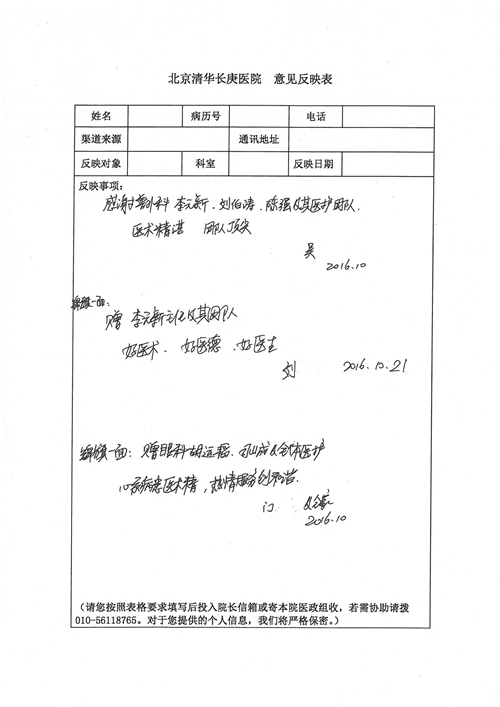 北京清华长庚医院 意见反映表
姓名 病历号 电话
渠道来源 通讯地址
反映对象 科室 反映日期
反映事项:
感谢 外科 李元新、刘伯涛、陈强及其医护团队
医术精湛 团队顶尖
吴
2016.10
锦旗一面:
赠 李元新主任及其团队
好医术、好医德、好医生
刘 2016.10.21
锦旗一面: 赠眼科胡运韬、 及全体医护
心系病患医术精,热情服务创和谐.
门 及全家
2016.10
(请您按照表格要求填写后投入院长信箱或寄本院医政组收,若需协助请拨
010-56118765。对于您提供的个人信息,我们将严格保密。)